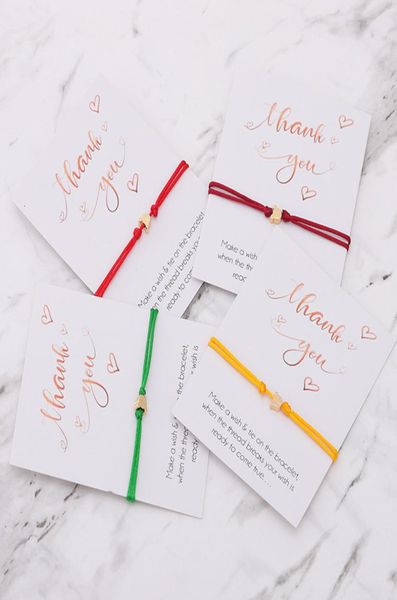 thank
you
Make a wish & tie on the bracelet,
when the thread breaks your
ready to co
thank
you
Make a wish
when the thread breaks y
ready t
thank
you
Make a wish & tie on the bracelet,
when the thread breaks your wish is
ready to come true....
thank
you
Make a wish & tie on the bracelet,
when the thread breaks your wish is
ready to come true....